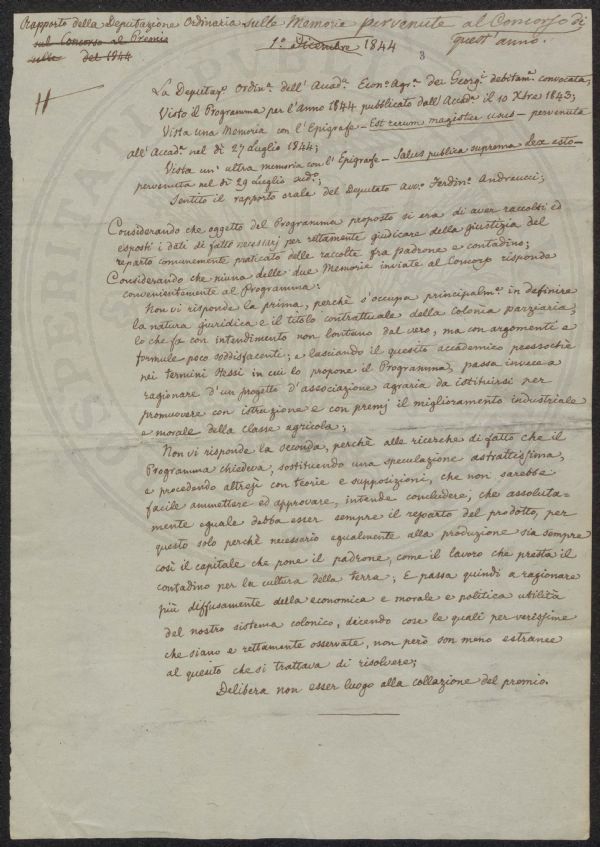 Rapporto della Deputazione Ordinaria sulle Memorie pervenute al Concorso di
sul Concorso al Premio quest'anno.
sulle del 1844
1º Dicembre 1844
3
La Deputazº Ordinª dell'Accadª Econº Agrª dei Georgⁱ debitamᵉ convocata,
Visto il Programma per l'Anno 1844 pubblicato dall'Accadª il 10 Xbre 1843;
Vista una Memoria con l'Epigrafe - Est rerum magister usus - pervenuta
all'Accadª nel dì 27 Luglio 1844;
Vista un'altra memoria con l'Epigrafe - Salus publica suprema Lex esto -
pervenuta nel dì 29 Luglio sudº;
Sentito il rapporto orale del Deputato Avvº Ferdinº Andreucci;
Considerando che oggetto del Programma proposto si era di aver raccolti ed
esposti i dati di fatto necessarj per rettamente giudicare della giustizia del
reparto comunemente praticato delle raccolte fra padrone e contadino;
Considerando che niuna delle due Memorie inviate al Concorso risponda
convenientemente al Programma:
Non vi risponde la prima, perchè s'occupa principalmᵉ in definire
la natura giuridica e il titolo contrattuale della colonia parziaria,
lo che fa con intendimento non lontano dal vero, ma con argomenti e
formule poco soddisfacente; e lasciando il quesito accademico pressochè
nei termini stessi in cui lo propone il Programma, passa invece a
ragionare d'un progetto d'associazione agraria da istituirsi per
promuovere con istruzione e con premj il miglioramento industriale
e morale della classe agricola;
Non vi risponde la seconda, perchè alle ricerche di fatto che il
Programma chiedeva, sostituendo una speculazione astrattissima,
e procedendo altresì con teorie e supposizioni, che non sarebbe
facile ammettere ed approvare, intende concludere; che assoluta=
mente eguale debba esser sempre il reparto del prodotto, per
questo solo perchè necessario egualmente alla produzione sia sempre
così il capitale che pone il padrone, come il lavoro che presta il
contadino per la cultura della terra; E passa quindi a ragionare
più diffusamente della economica e morale e politica utilità
del nostro sistema colonico, dicendo cose le quali per verissime
che siano e rettamente osservate, non però son meno estranee
al quesito che si trattava di risolvere;
Delibera non esser luogo alla collazione del premio.